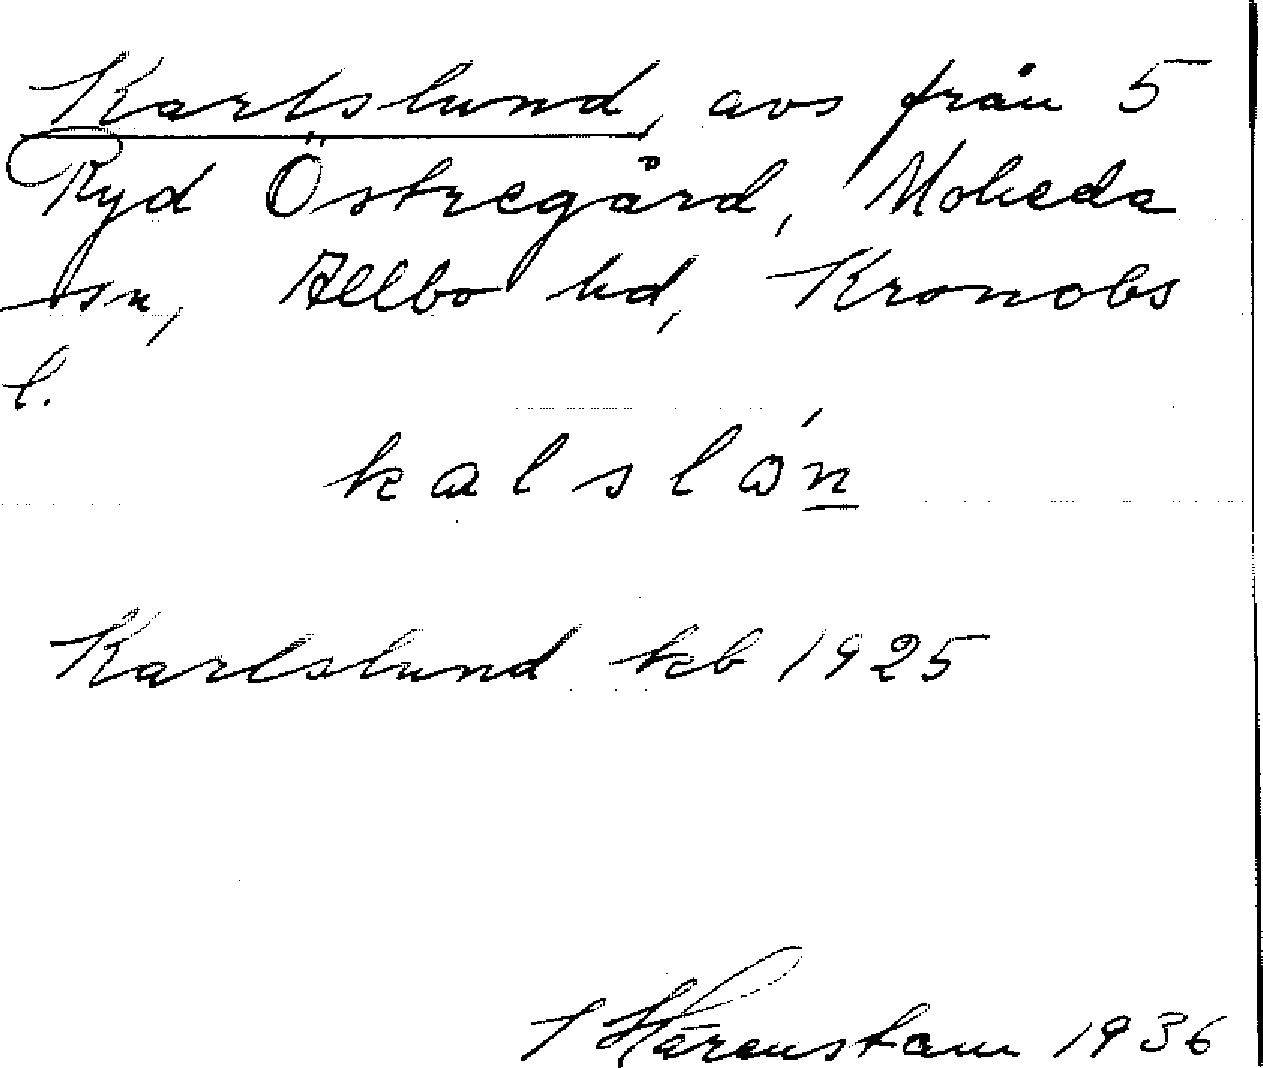 Karlslund, avs från 5
Ryd Östregård, Moheda
sn, Allbo hd, Kronobs
l.
kalslón
Karlslund kb 1925
Härenstam 1936